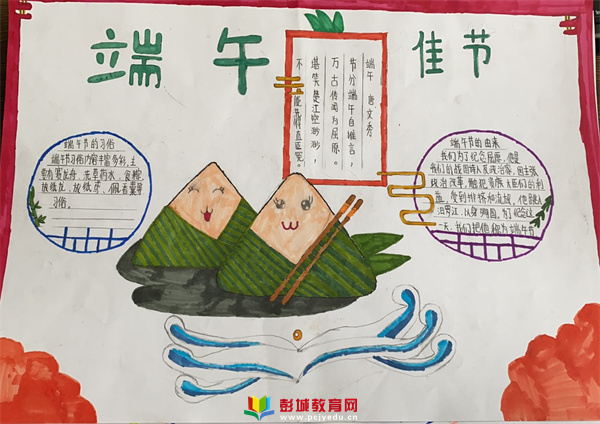 端午 佳节
端午 唐文秀
节分端午自谁言，
万古传闻为屈原。
堪笑楚江空渺渺，
不能洗得直臣冤。
端午节的习俗
端午节习俗内容丰富多彩，主
要有赛龙舟、洗草药水、食粽、
放纸龙、放纸鸢、佩香囊等
习俗。
端午节的由来
我们为了纪念屈原，
我们的战国时人政治家，因主张
政治改革，触犯贵族大臣们的利
益，受到排挤和流放，他跳入
汨罗江，以身殉国，为了纪念这
一天，我们把他称为端午节
彭城教育网
www.pcjyedu.cn